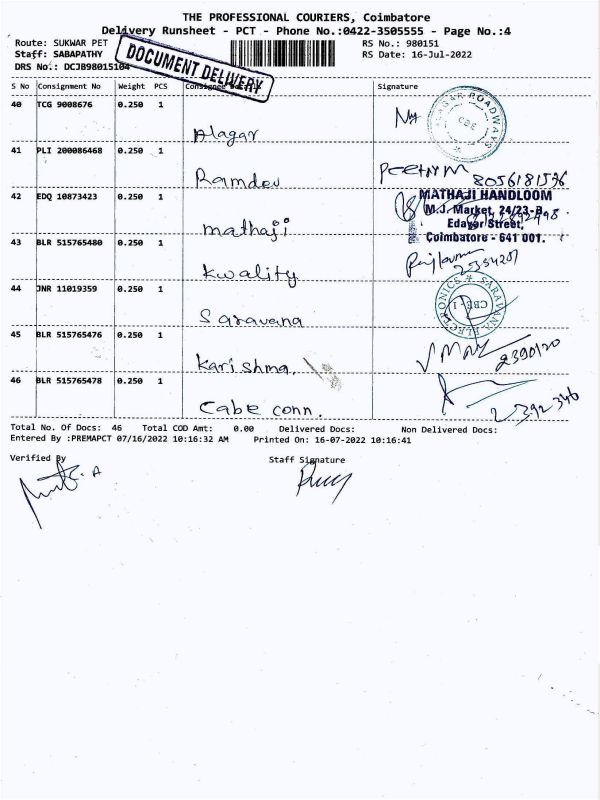 THE PROFESSIONAL COURIERS, Coimbatore
Delivery Runsheet - PCT - Phone No.:0422-3505555 - Page No.:4
Route: SUKWAR PET
RS No.: 980151
Staff: SABAPATHY
RS Date: 16-Jul-2022
DRS No.: DCJB98015104
DOCUMENT DELIVERY
S No Consignment No Weight PCS Signature
40 TCG 9008676 0.250 1
Alagar
CBE
41 PLI 200086468 0.250 1
Ramdev
8056181536
42 EDQ 10873423 0.250 1
mathaji
MATHAJI HANDLOOM
M.J. Market, 24/23-B,
Edayar Street,
Coimbatore - 641 001.
43 BLR 515765480 0.250 1
Kwality
2354201
44 JNR 11019359 0.250 1
Saravana
SARAVANA ELECTRONICS
CBE-1
45 BLR 515765476 0.250 1
Karishma.
2390120
46 BLR 515765478 0.250 1
Cabe conn.
2392346
Total No. Of Docs: 46 Total COD Amt: 0.00 Delivered Docs: Non Delivered Docs:
Entered By :PREMAPCT 07/16/2022 10:16:32 AM Printed On: 16-07-2022 10:16:41
Verified By
Staff Signature